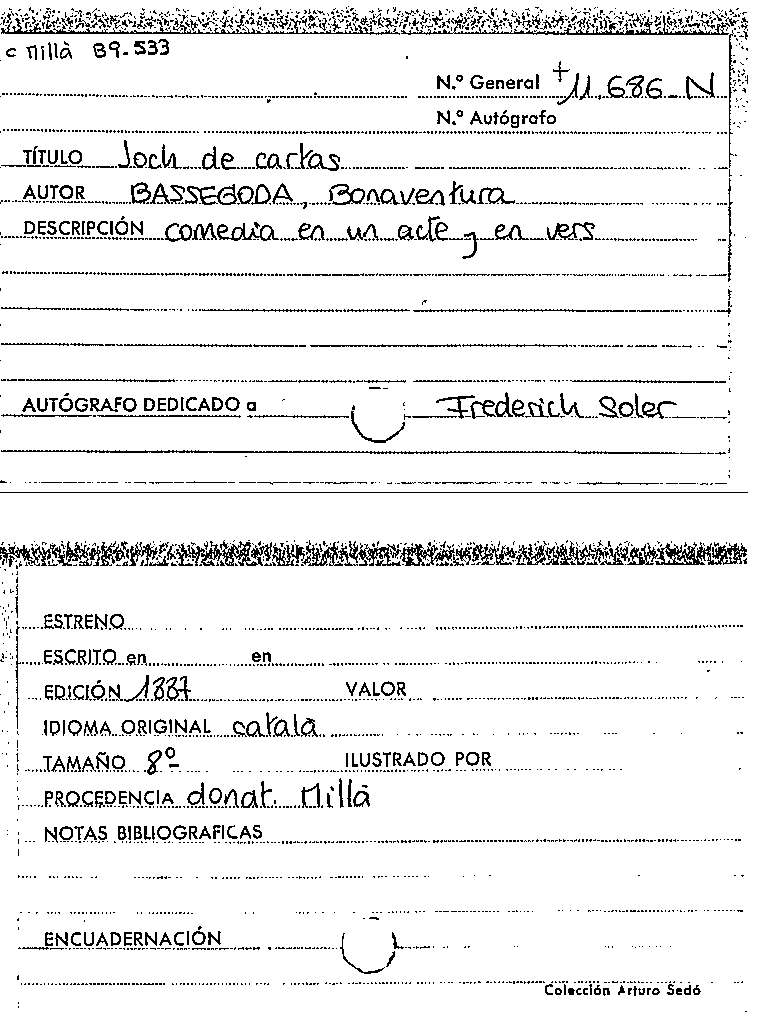 c Millà 89.533
N.º General +11.686-N
N.º Autógrafo
TÍTULO Joch de cartas
AUTOR BASSEGODA, Bonaventura
DESCRIPCIÓN comedia en un acte y en vers
AUTÓGRAFO DEDICADO a Frederich Soler
ESTRENO
ESCRITO en en
EDICIÓN 1887 VALOR
IDIOMA ORIGINAL català
TAMAÑO 8º ILUSTRADO POR
PROCEDENCIA donat. Millà
NOTAS BIBLIOGRAFICAS
ENCUADERNACIÓN
Colección Arturo Sedó